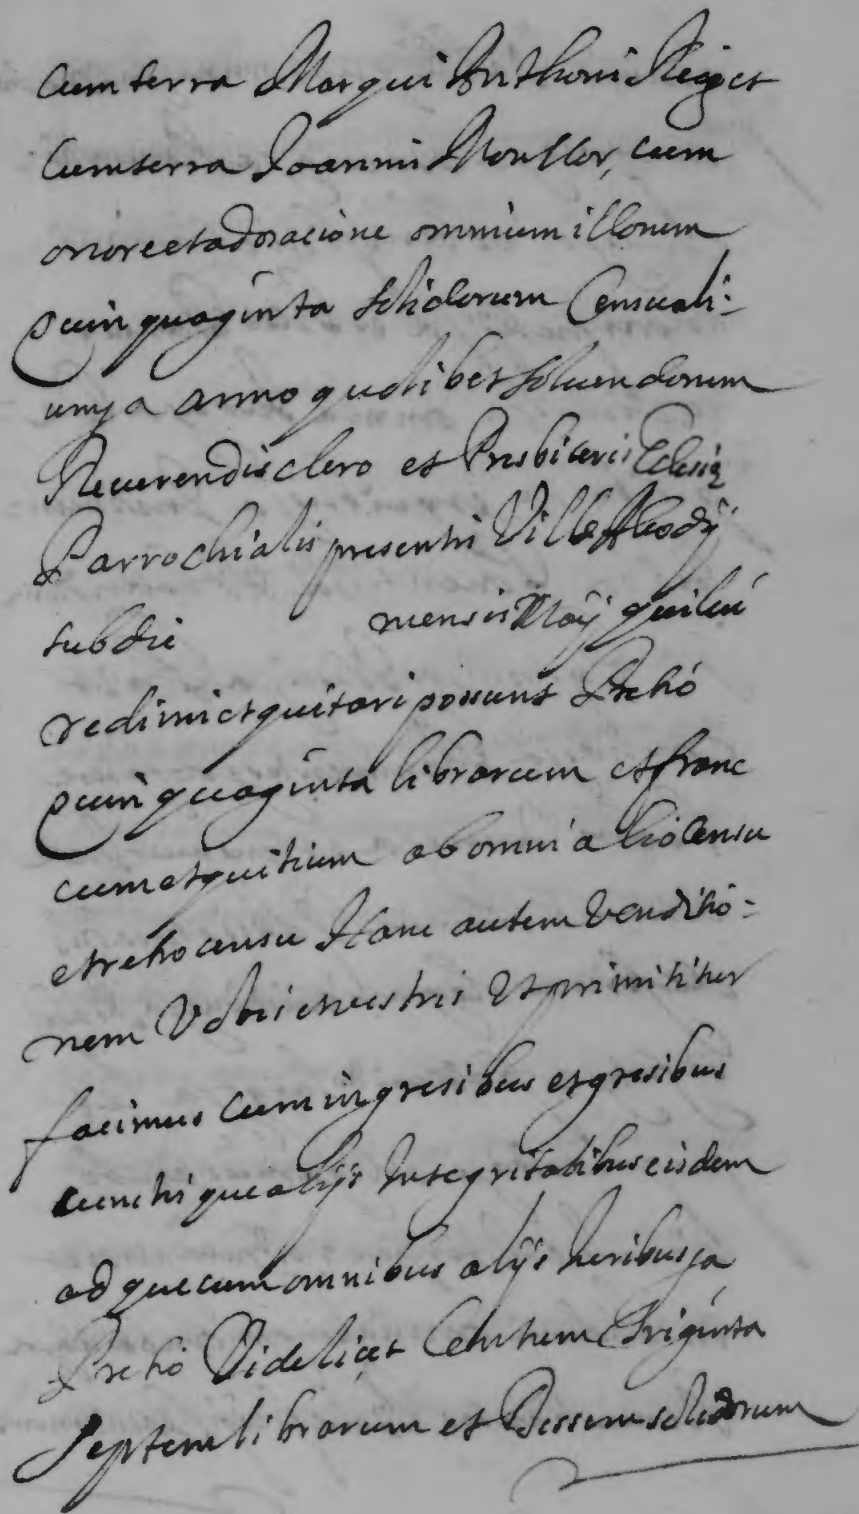 cum terra Marqui Anthoni Reig et
cum terra Joanni Monllor, cum
onore et adoracione omnium illorum
quinquaginta solidorum Censuali-
um, a anno quolibet soluendorum
Reuerendis clero et Presbiteris Eclesiæ
Parrochialis presentis Ville Alcodij
sub die mensis Maij qui
redimi et quitari possunt Pretio
quinquaginta librarum et franc
cum et quitium ab omni alio Censu
et retrocensu Hanc autem venditio-
nem Vobis et vestris Et primititer
facimus cum ingresibus egresibus
cunctisque alijs Integritatibus eisdem
adque cum omnibus alijs Iuribus
Pretio Videlicet Centum triginta
septem librarum et Decem solidorum